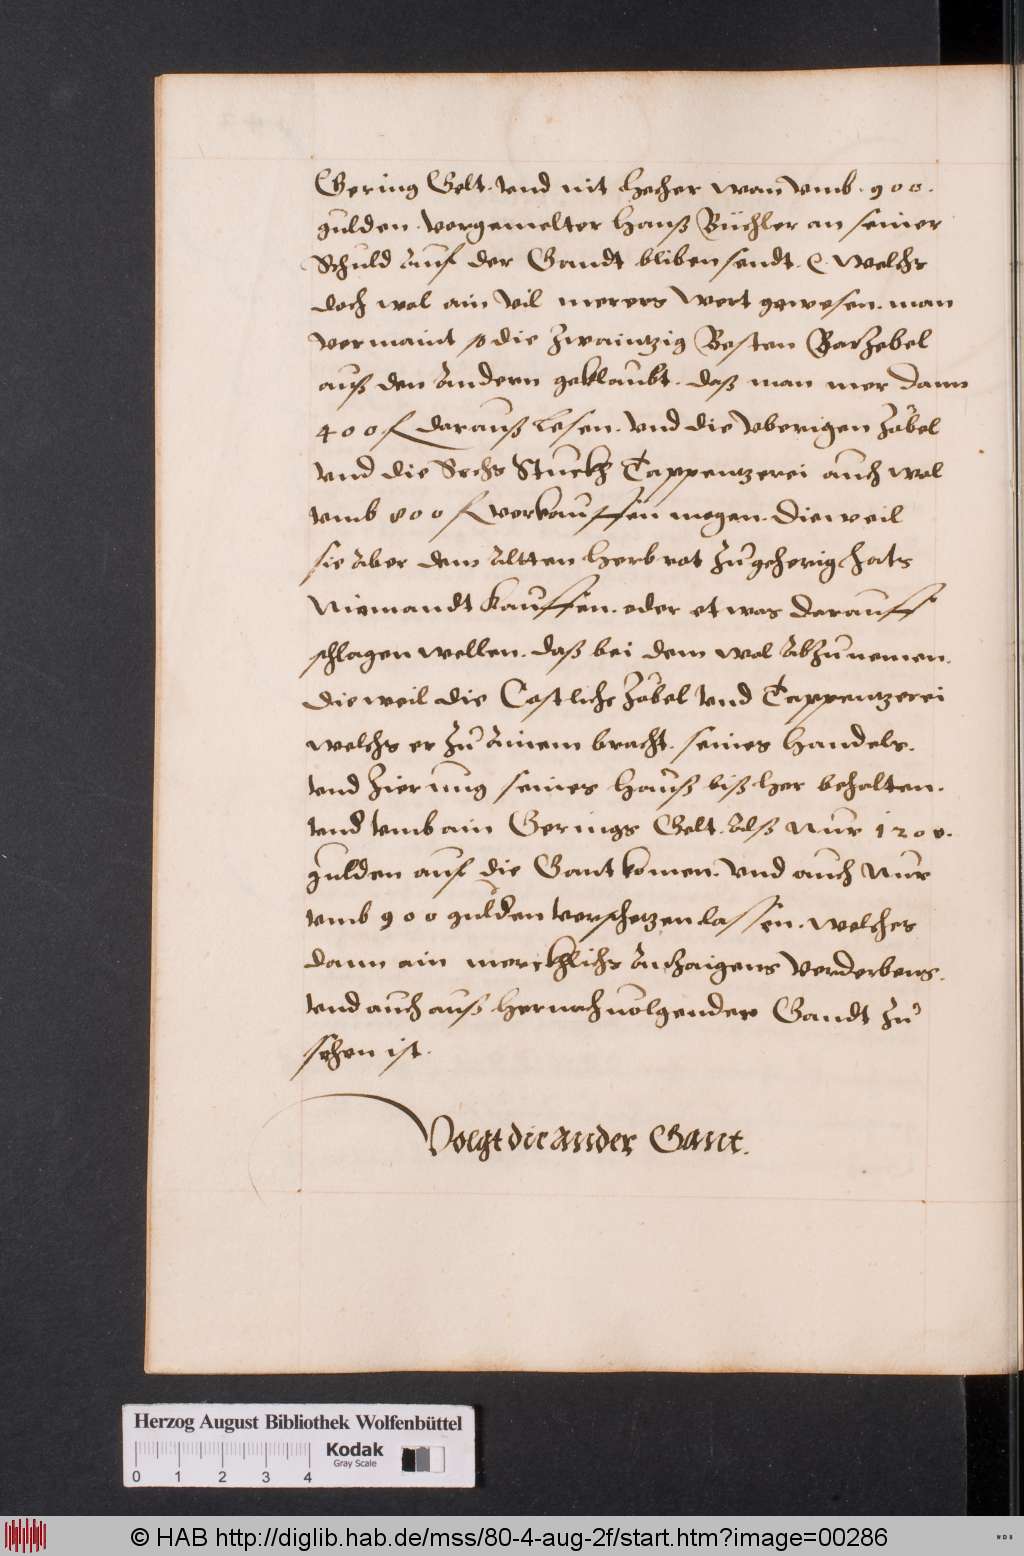 Gering Gelt. vnd nit hecher wan vmb. 900.
gulden. vorgemelter Hanß Büchler an seiner
Schuld Auf der Gandt bliben sendt. welchs
doch wol ain vil merers wert gewesen. man
vermaint so die zwaintzig Besten Par Zobel
auß den Andern geklaubt. daß man mer dann
400 f. darauß lesen. vnd die vberigen Zobel
vnd die Sechs Stuckh Tappentzerei auch wol
vmb 800 f. verkauffen megen. Dieweil
sie Aber dem Altten Herbrot Zugeherig hats
Niemandt kauffen. oder etwas darauff
schlagen wellen. daß bei dem wol Abzunemen.
Dieweil die Costliche Zobel vnd Tappentzerei
welchs er Zu Ainem bracht. seines Handels.
vnd Zierung seines Hauß biß her behalten.
vnd vmb ain Gerings Gelt. Alß Nur 1200.
gulden auf die Gant komen. vnd auch Nur
vmb 900 gulden verschetzen lassen. welches
dann ain merckhlichs Anzaigens Verderbens.
vnd auch auß hernach uolgender Gandt Zu
sehen ist.
Volgt die ander Gant.
Herzog August Bibliothek Wolfenbüttel
Kodak
Gray Scale
0 1 2 3 4
© HAB http://diglib.hab.de/mss/80-4-aug-2f/start.htm?image=00286